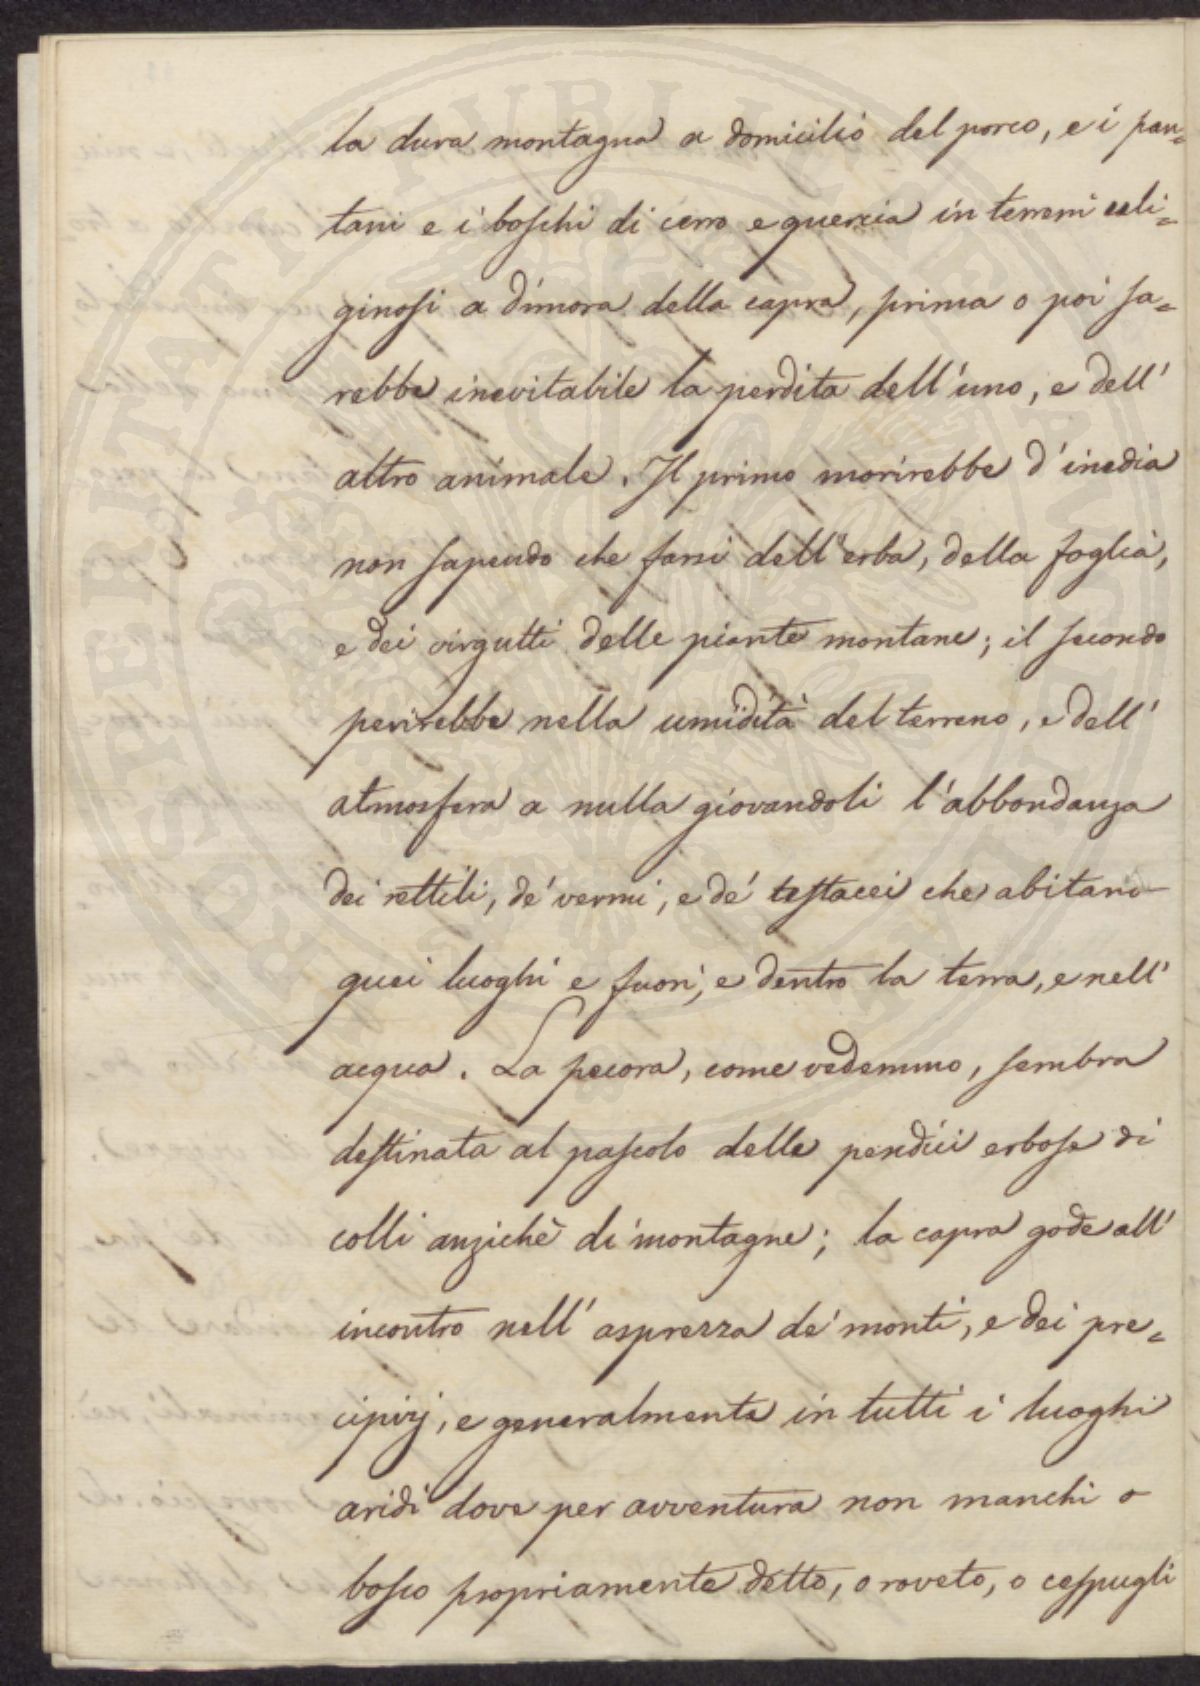 la dura montagna a domicilio del porco, e i pan=
tani e i boschi di cerro e quercia in terreni cali=
ginosi a dimora della capra, prima o poi sa=
rebbe inevitabile la perdita dell'uno, e dell'
altro animale. Il primo morirebbe d'inedia
non sapendo che farsi dell'erba, della foglia,
e dei virgulti delle piante montane; il secondo
perirebbe nella umidità del terreno, e dell'
atmosfera a nulla giovandoli l'abbondanza
dei rettili, de' vermi, e de' testacei che abitano
quei luoghi e fuori, e dentro la terra, e nell'
acqua. La pecora, come vedemmo, sembra
destinata al pascolo delle pendici erbose di
colli anzichè di montagne; la capra gode all'
incontro nell'asprezza de' monti, e dei pre=
cipizj, e generalmente in tutti i luoghi
aridi dove per avventura non manchi o
bosco propriamente detto, o roveto, o cespugli
PROSPERITATI PUBLICAE AUGENDAE